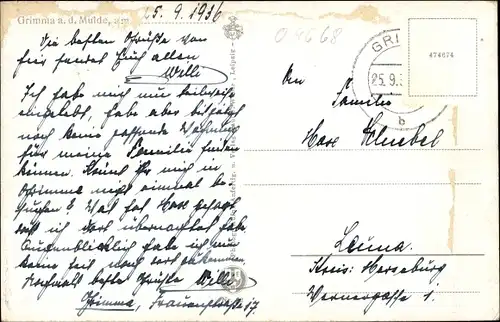 Grimma a. d. Mulde,
25. 9. 1936
Die besten Grüße von
hier sendet Euch allen
Willi
Ich habe mich nun teilweise
eingelebt, habe aber
noch keine passende Wohnung
für meine Familie finden
können. Könnt Ihr mich in
Grimma nicht einmal be-
suchen? Was hat Max gesagt
daß ich dort übernachtet habe
Augenblicklich habe ich nun
keine Zeit nach dort zu kommen.
Nochmals beste Grüße Willi
Grimma, Frauenstraße 17.
Leipzig
09668
GRI
25.9.3
b
474674
An
Familie
Max
Leuna.
Kreis: Merseburg
Wernergasse 1.